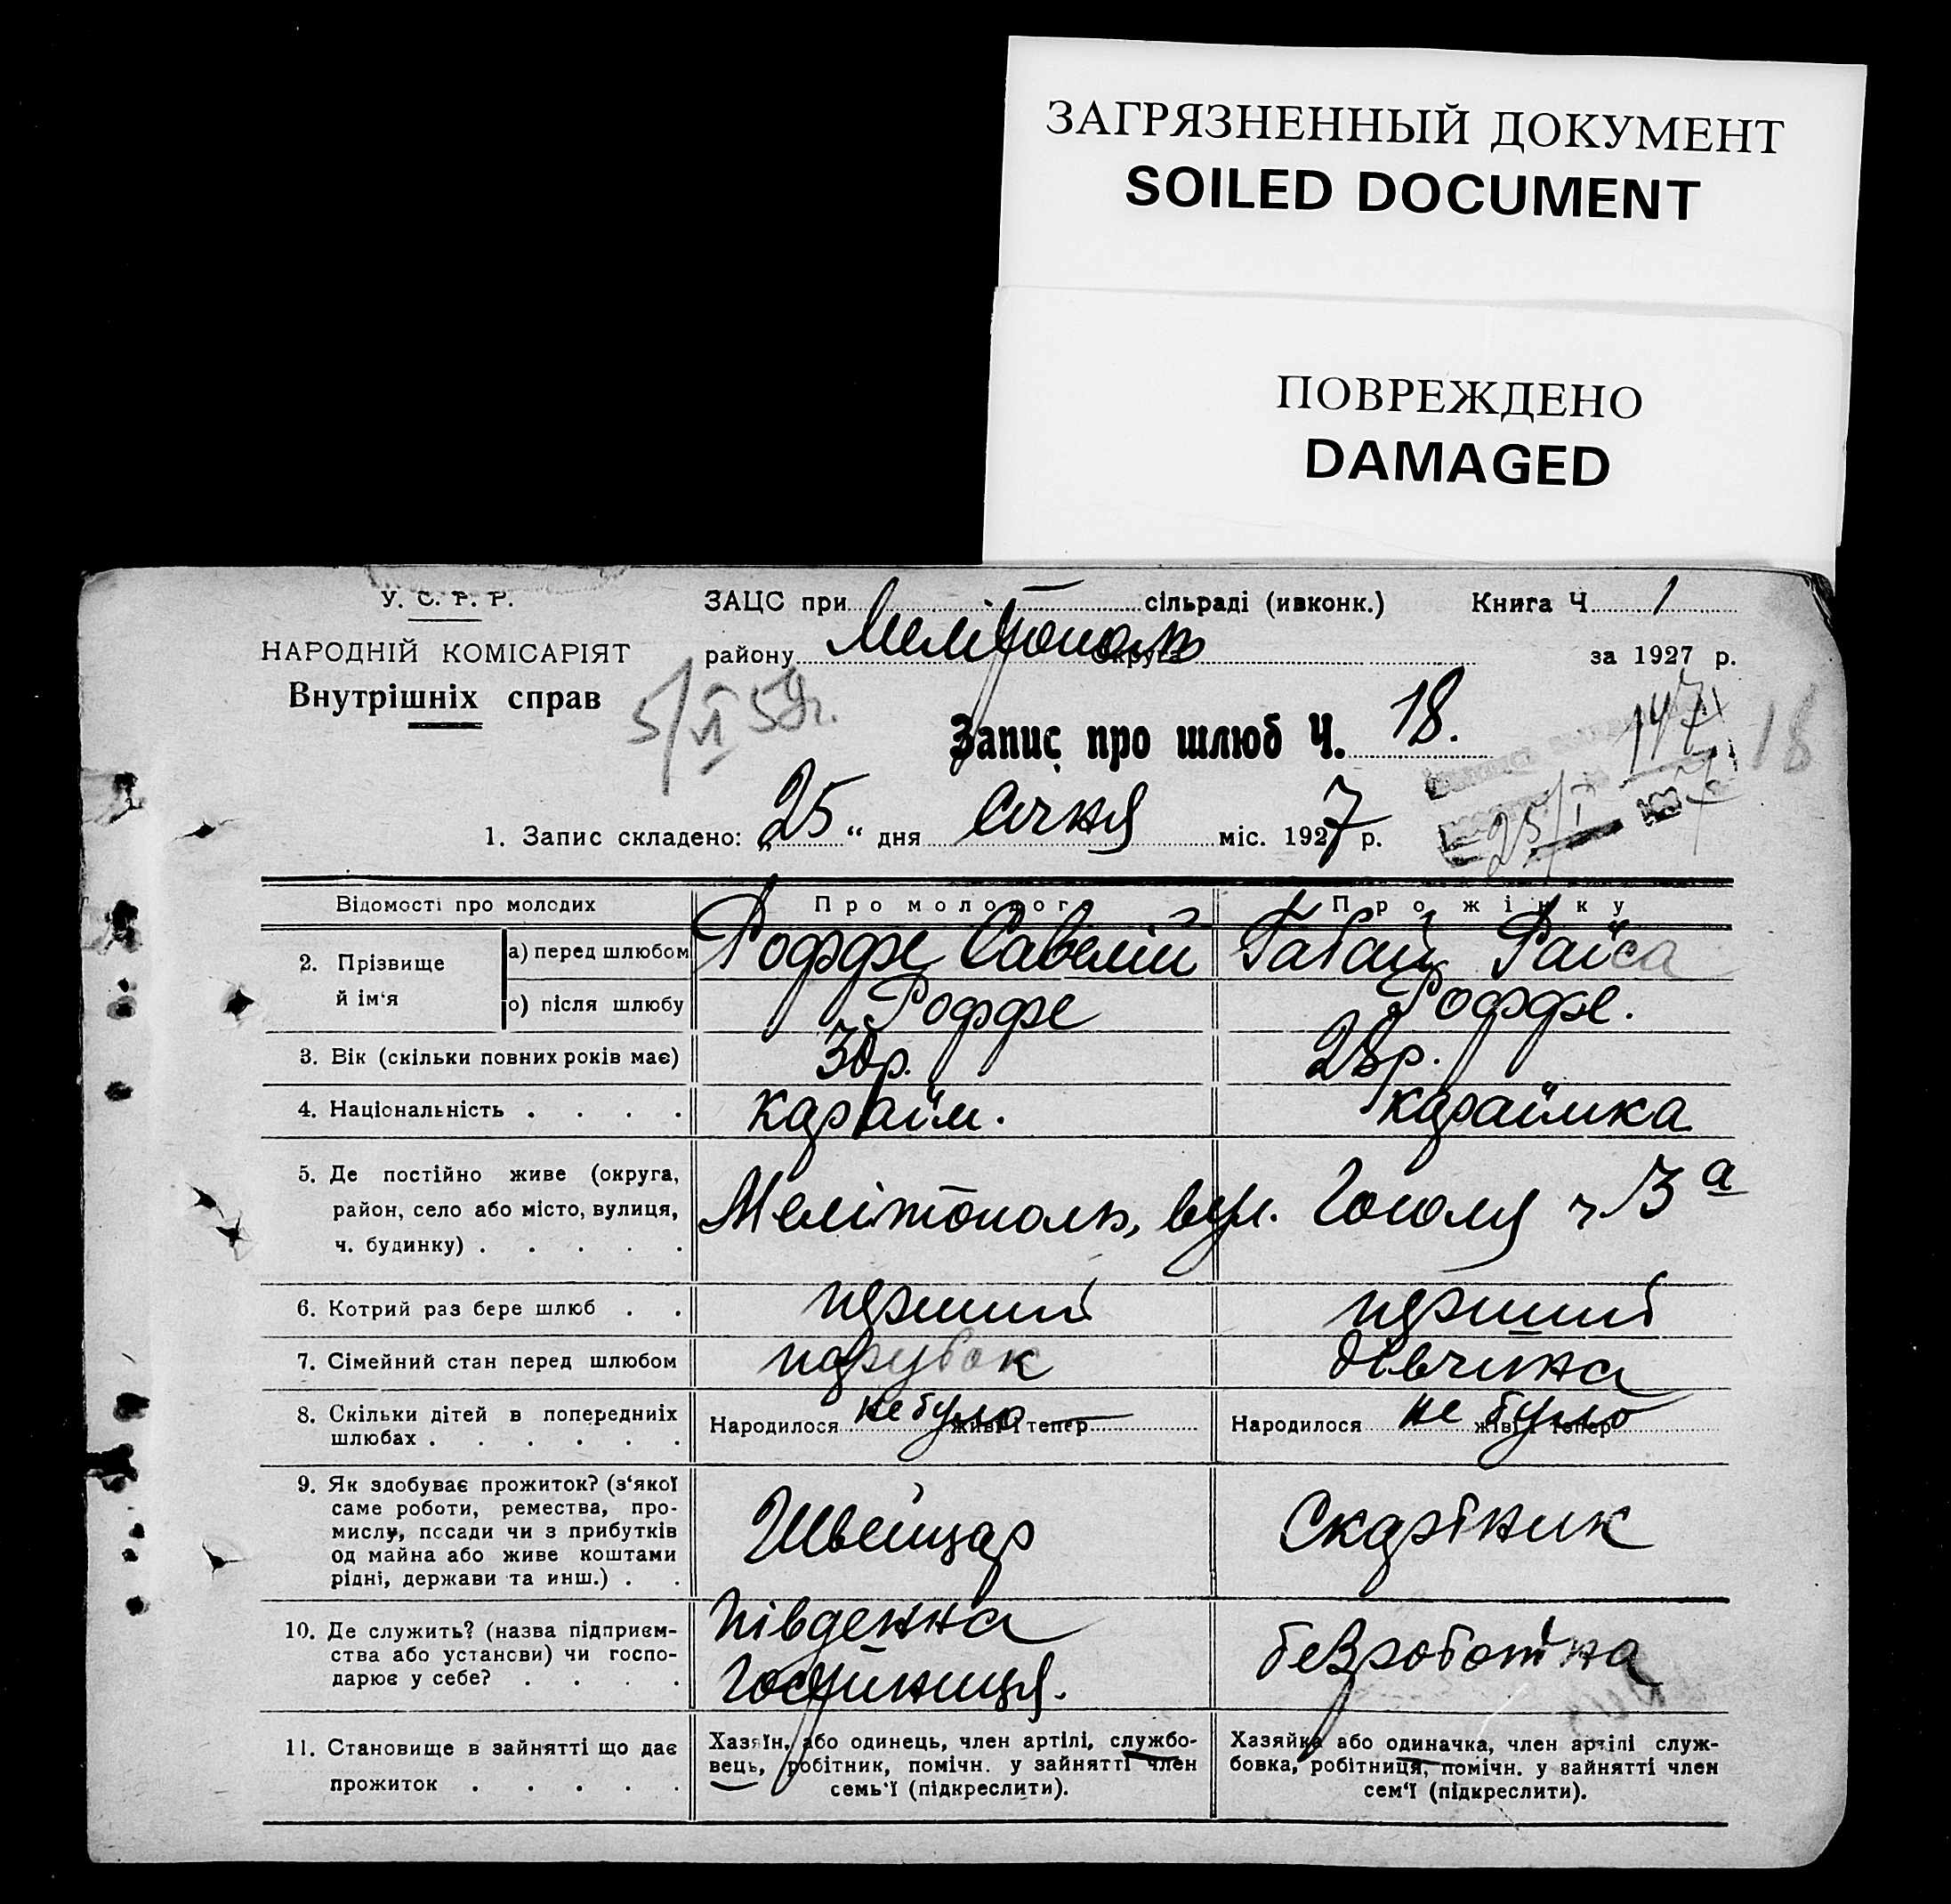 ЗАГРЯЗНЕННЫЙ ДОКУМЕНТ
SOILED DOCUMENT
ПОВРЕЖДЕНО
DAMAGED
У. С. Р. Р.
НАРОДНІЙ КОМІСАРІЯТ
Внутрішніх справ
ЗАЦС при сільраді (ивконк.) Книга Ч 1
району Мелітополь округа за 1927 р.
5/VI 59г.
Запис про шлюб Ч. 18.
147
18
25/I 1927
1. Запис складено: „25“ дня Січня міс. 1927 р.
Відомості про молодих Про молодого Про жінку
2. Прізвище й ім‘я
а) перед шлюбом Роффе Савелій Габай Раїса
о) після шлюбу Роффе Роффе.
3. Вік (скільки повних років має) 30р. 28р.
4. Національність . . . . караїм. караїмка
5. Де постійно живе (округа,
район, село або місто, вулиця, Мелітополь, вул. Гоголя ч 13 а
ч. будинку) . . . . .
6. Котрий раз бере шлюб . . перший перший
7. Сімейний стан перед шлюбом парубок дівчина
8. Скільки дітей в попередніх Народилося не було живі і тепер Народилося не було живі і тепер
шлюбах . . . . . .
9. Як здобуває прожиток? (з‘якої
саме роботи, ремества, про-
мислу, посади чи з прибутків Швейцар Скарбник
од майна або живе коштами
рідні, держави та инш.) . .
10. Де служить? (назва підприєм- Південна
ства або установи) чи госпо- безработна
дарює у себе? . . . . Гостиниця.
11. Становище в зайнятті що дає
прожиток . . . . .
Хазяїн, або одинець, член артілі, службо-
вець, робітник, помічн. у зайнятті член
семь‘ї (підкреслити).
Хазяйка або одиначка, член артілі служ-
бовка, робітниця, помічн. у зайнятті член
сем‘ї (підкреслити).